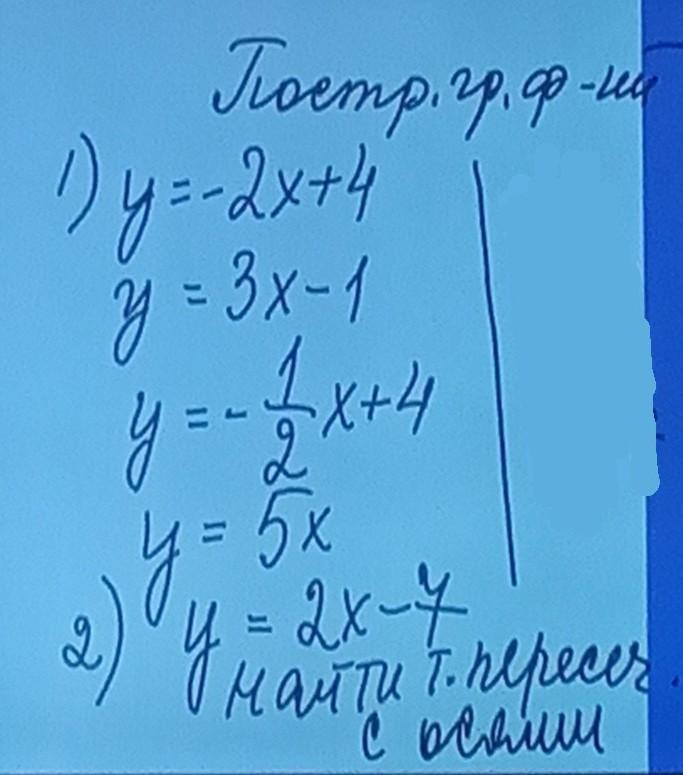 Постр. гр. ф-ии
1) y = -2x+4
y = 3x-1
y = -1/2 x+4
y = 5x
2) y = 2x-7
найти т. пересеч.
с осями